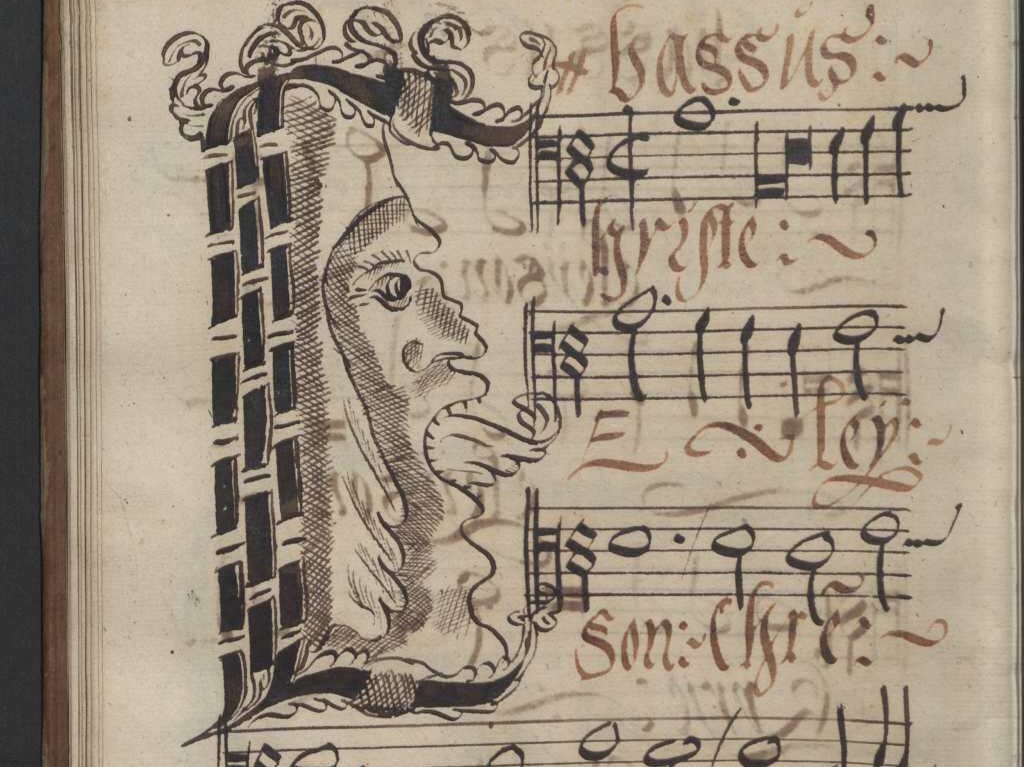 bassus:~
hriste: ~
E ~ ley:~
Son: Chri e: ~